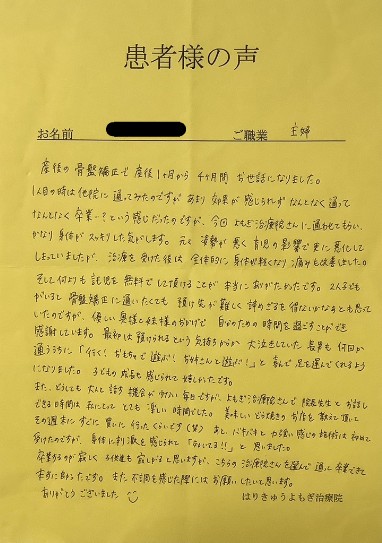 患者様の声
お名前 ご職業 主婦
産後の骨盤矯正で産後1ヶ月から4ヶ月間お世話になりました。
1人目の時は他院に通ってみたのですがあまり効果が感じられずなんとなく通って
なんとなく卒業…?という感じだったのですが、今回よもぎ治療院さんに通わせてもらい、
かなり身体がスッキリした気がします。元々姿勢が悪く育児の影響で更に悪化して
しまっていましたが、治療を受けた後は全体的に身体が軽くなり痛みも改善しました。
そして何よりも託児を無料でして頂けることが本当にありがたかったです。2人子ども
がいると骨盤矯正に通いたくても預け先が難しく諦めざるを得ないかなぁとも思って
いたのですが、優しい奥様とお姉様のおかげで自分のための時間を過ごすことができ
感謝しています。最初は預けられるという気持ちからか大泣きしていた長男も何回か
通ううちに「行く!おもちゃで遊ぶ!お姉さんと遊ぶ!」と喜んで足を運んでくれるように
になりました。子どもの成長も感じられて嬉しかったです。
また、どうしても大人と話す機会が少ない毎日ですが、よもぎ治療院さんで院長先生とお話し
できる時間は私にとってとても楽しい時間でした。美味しいどら焼きのお店を教えて頂いて
その週末にすぐに買いに行ったくらいです(笑)あと、バキバキと力強い感じの施術は初めて
受けたのですが、身体に刺激を感じられて「なおしてる!!」と思いました。
卒業するのが寂しく子供達も寂しがると思いますが、こちらの治療院さんを選んで通って卒業できて
本当に良かったです。また不調を感じた際にはお願いしたいと思います。
ありがとうございました
はりきゅうよもぎ治療院